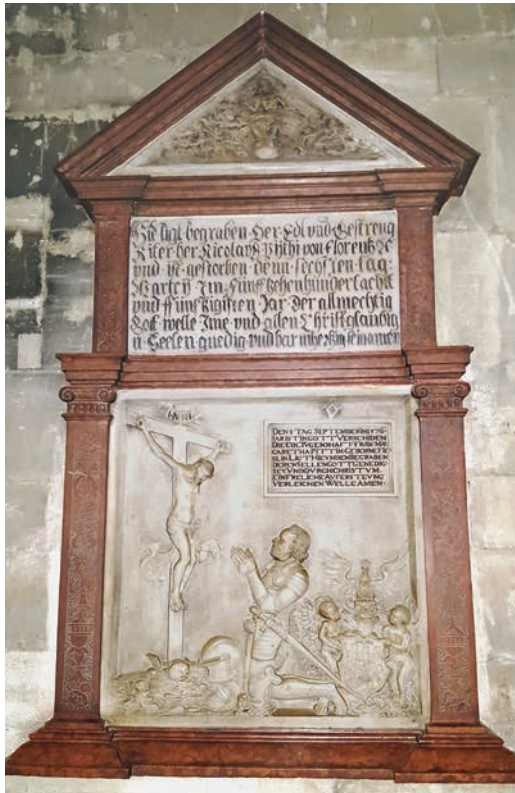 Hie ligt begraben Her Edl vnd Gestreng
Riter her Nicolaus von Florentz
vnd ist gestorben denn sechsten tag
Martij Im Funffzehenhundert achte
vnd Funffzigisten Jar Der allmechtig
Got welle Ime vnd allen Christglaubig
n Seelen gnedig vnd barmhertzig sein amen
INRI
DEN TAG SEPTEMBER
IST IN GOTT VERSCHIDEN
DIE EDL TVGENHAFT FRAW MAR
GARETHA
LIGT HIE BEGRABEN
DEREN SELLEN GOTT GENEDIG
SEY VND DVRCH CHRISTVM
EIN FRELICHE AVFERSTEVNG
VERLEICHEN WELLE AMEN